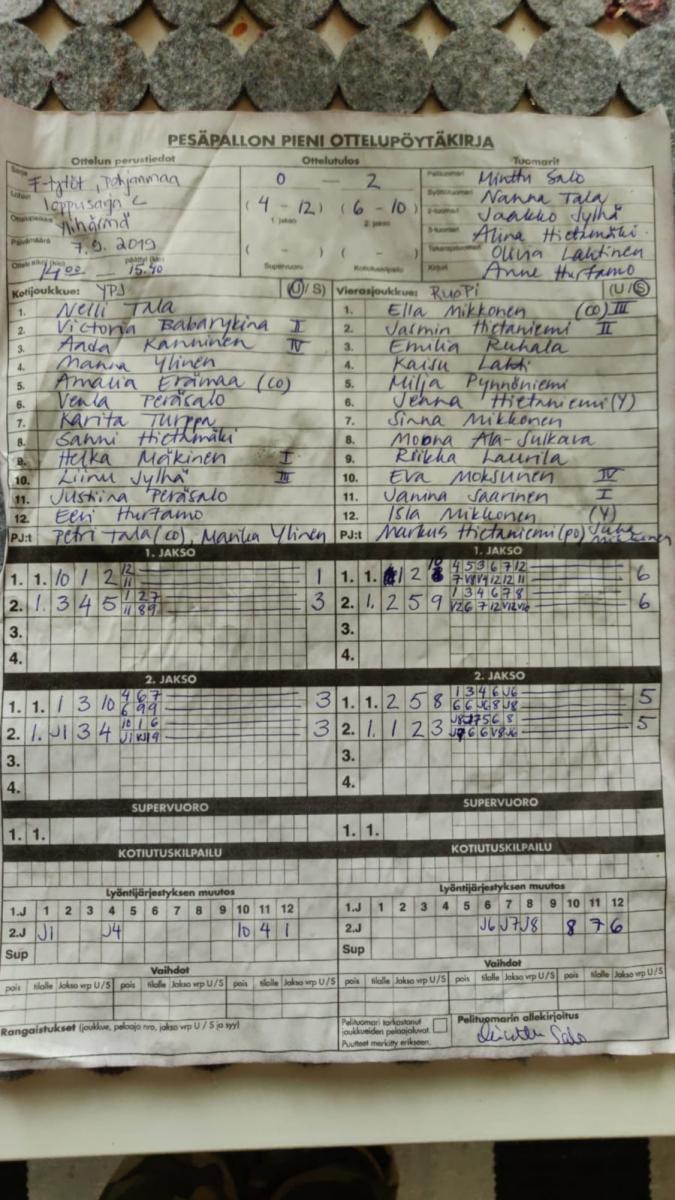 PESÄPALLON PIENI OTTELUPÖYTÄKIRJA
Ottelun perustiedot Ottelutulos Tuomarit
Sarja F-tytöt, Pohjanmaa
Lohko loppusarja C
Ottelupaikka Ylihärmä
Päivämäärä 7.9. 2019
14.00 — 15.40
0 — 2
(4 - 12) (6 - 10)
1. jakso 2. jakso
( - ) ( - )
Supervuoro Kotiutuskilpailu
Pelituomari Minttu Salo
Syöttötuomari Nanna Tala
2-tuomari Jaakko Sylhä
3-tuomari Alina Hietamäki
Takarajatuomari Olivia Lahtinen
Kirjuri Anne Hurtamo
Kotijoukkue: YPJ (U/S) Vierasjoukkue: RuoPi (U/S)
1. Nelli Tala
2. Victoria Babarykina II
3. Aada Kanninen IV
4. Manna Ylinen
5. Amalia Erämaa (CO)
6. Venla Peräsalo
7. Karita Turppa
8. Sanni Hietamäki
9. Helka Mäkinen I
10. Liinu Sylhä III
11. Justiina Peräsalo
12. Eeri Hurtamo
PJ:t Petri Tala (CO), Marika Ylinen
1. Ella Mikkonen (CO) III
2. Jasmin Hietaniemi II
3. Emilia Ruhala
4. Kaisu Lahti
5. Milja Pynnöniemi
6. Jenna Hietaniemi (Y)
7. Sinna Mikkonen
8. Moona Ala-Julkava
9. Riikka Laurila
10. Eva Moksunen IV
11. Janina Saarinen I
12. Isla Mikkonen (Y)
PJ:t Markus Hietaniemi (po) Juha Mikkonen
1. JAKSO 1. JAKSO
1. 1. 10 1 2 12 11 1
2. 1. 3 4 5 1 2 7 11 8 9 3
3.
4.
1. 1. 1 2 4 5 3 6 7 12 6
2. 1. 2 5 9 1 3 4 6 7 8 6
3.
4.
2. JAKSO 2. JAKSO
1. 1. 1 3 10 4 6 7 6 9 9 3
2. 1. J1 3 4 10 1 6 3
3.
4.
1. 1. 2 5 8 1 3 4 6 J6 6 6 J6 8 J8 5
2. 1. 1 2 3 5
3.
4.
SUPERVUORO SUPERVUORO
1. 1. 1. 1.
KOTIUTUSKILPAILU KOTIUTUSKILPAILU
Lyöntijärjestyksen muutos Lyöntijärjestyksen muutos
1.J 1 2 3 4 5 6 7 8 9 10 11 12
2.J J1 J4 10 4 1
Sup
1.J 1 2 3 4 5 6 7 8 9 10 11 12
2.J J6 J7 J8 8 7 6
Sup
Vaihdot Vaihdot
pois tilalle Jakso vrp U/S pois tilalle Jakso vrp U/S pois tilalle Jakso vrp U/S
pois tilalle Jakso vrp U/S pois tilalle Jakso vrp U/S pois tilalle Jakso vrp U/S
Rangaistukset (joukkue, pelaaja nro, jakso vrp U / S ja syy)
Pelituomari tarkastanut joukkueiden pelaajaluvat.
Puutteet merkitty erikseen.
Pelituomarin allekirjoitus
Minttu Salo